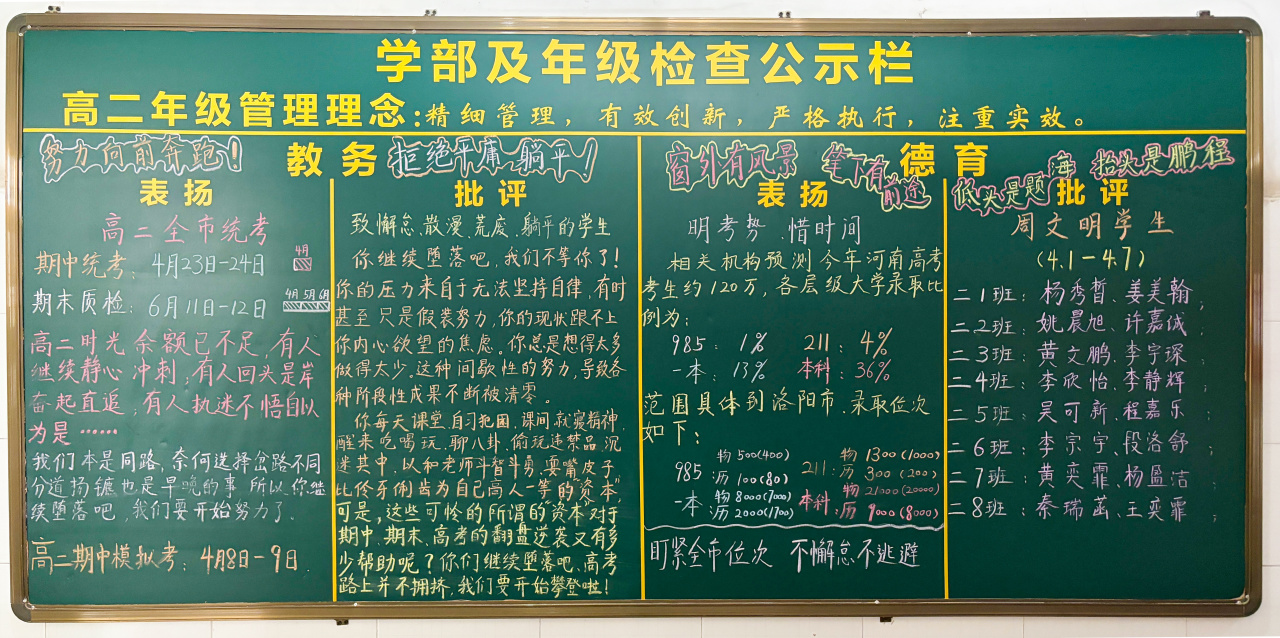 学部及年级检查公示栏
高二年级管理理念:精细管理，有效创新，严格执行，注重实效。
努力向前奔跑！
教务
拒绝平庸、躺平！
表扬
高二全市统考
期中统考：4月23日-24日
4月
期末质检：6月11日-12日
4月5月6月
高二时光余额已不足，有人
继续静心冲刺；有人回头是岸
奋起直追；有人执迷不悟自以
为是……
我们本是同路，奈何选择岔路不同
分道扬镳也是早晚的事，所以，你继
续堕落吧，我们要开始努力了。
高二期中模拟考：4月8日-9日
批评
致懈怠、散漫、荒废、躺平的学生
你继续堕落吧，我们不等你了！
你的压力来自于无法坚持自律，有时
甚至只是假装努力，你的现状跟不上
你内心欲望的焦虑。你总是想得太多
做得太少。这种间歇性的努力，导致各
种阶段性成果不断被清零。
你每天课堂、自习犯困，课间就寝精神，
醒来吃喝玩、聊八卦、偷玩违禁品，沉
迷其中，以和老师斗智斗勇、耍嘴皮子、
比伶牙俐齿为自己高人一等的“资本”，
可是，这些可怜的所谓的“资本”对于
期中、期末、高考的翻盘逆袭又有多
少帮助呢？你们继续堕落吧，高考
路上并不拥挤，我们要开始攀登啦！
窗外有风景 笔下有前途
德育
低头是题海 抬头是鹏程
表扬
明考势、惜时间
相关机构预测今年河南高考
考生约120万，各层级大学录取比
例为：
985：1% 211：4%
一本：13% 本科：36%
范围具体到洛阳市，录取位次
如下：
985 物500(400) 历100(80) 211: 物1300(1000) 历300(200)
一本: 物8000(7000) 历2000(1700) 本科: 物21000(20000) 历9000(8000)
盯紧全市位次 不懈怠不逃避
批评
周文明学生
(4.1-4.7)
二1班：杨秀哲、姜美翰；
二2班：姚晨旭、许嘉诚；
二3班：黄文鹏、李宇琛；
二4班：李欣怡、李静辉；
二5班：吴可新、程嘉乐；
二6班：李宗宇、段洛舒；
二7班：黄奕霏、杨盈洁；
二8班：秦瑞菡、王奕霏；